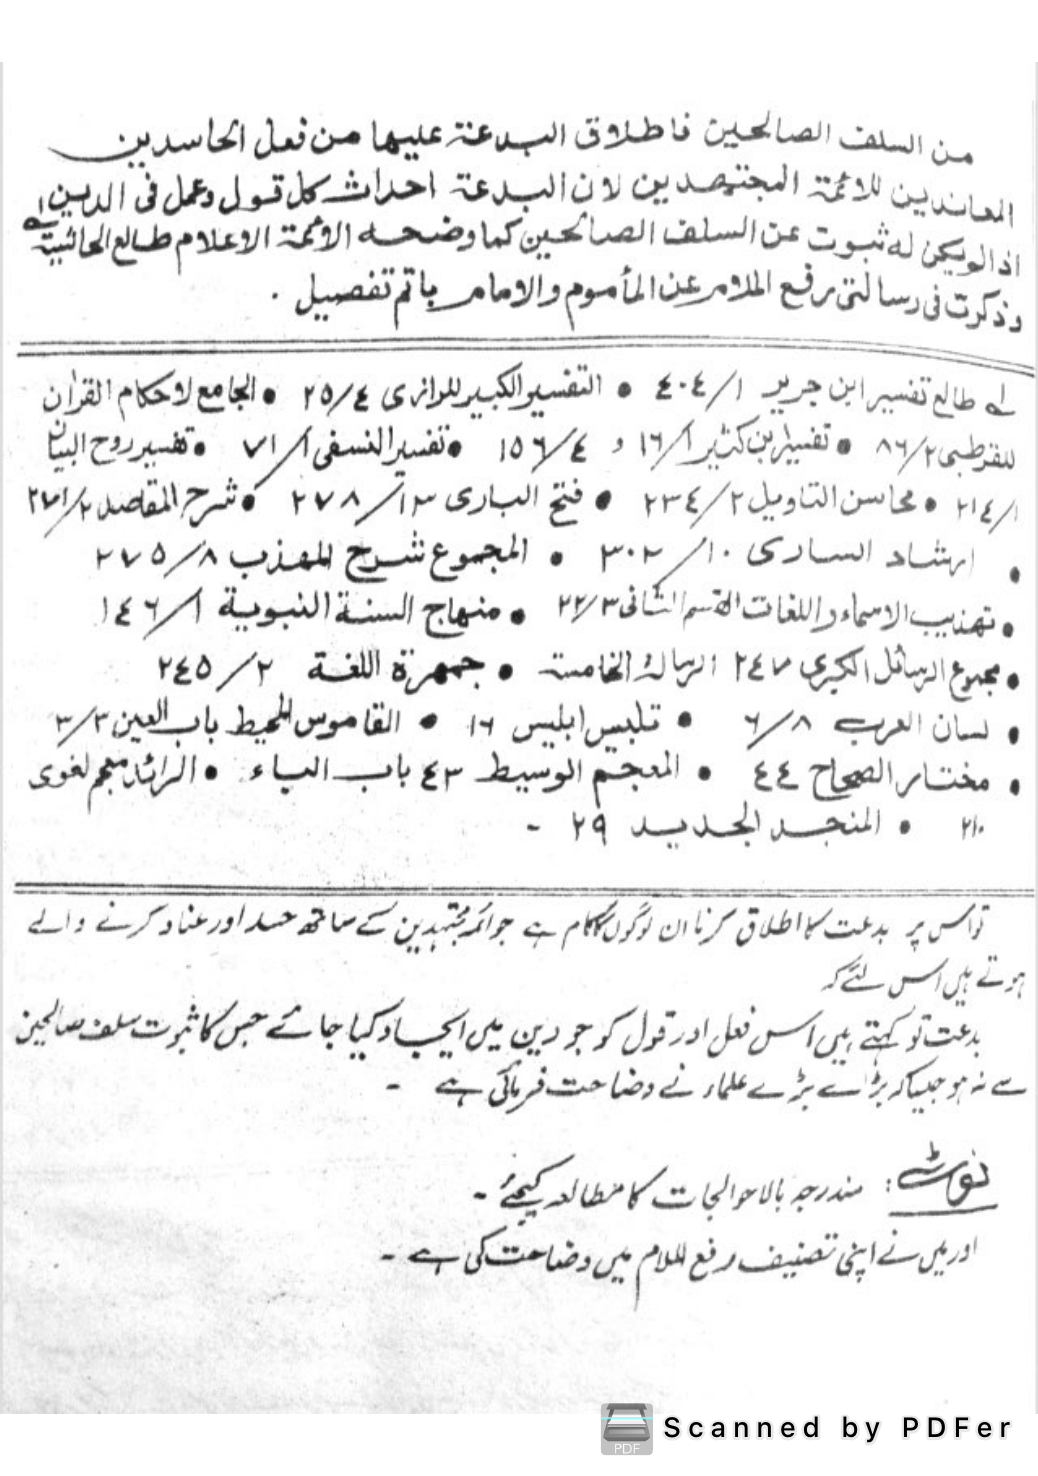 من السلف الصالحين فاطلاق البدعة عليها من فعل الحاسدين
المعاندين للائمة المجتهدين لان البدعة احداث كل قول وعمل فى الدين
اذا لم يكن له ثبوت عن السلف الصالحين كما وضحه الائمة الاعلام طالع الحاشية
وذكرت فى رسالتى رفع الملام عن المأموم والامام باتم تفصيل .
لے طالع تفسير ابن جرير ١/٤٠٤ • التفسير الكبير للرازى ٤/٢٥ • الجامع لاحكام القران
للقرطبى ٢/٨٦ • تفسير ابن كثير ١/١٦ و ٤/١٥٦ • تفسير النسفى ١/٧١ • تفسير روح البيان
١/٢١٤ • محاسن التاويل ٢/٢٣٤ • فتح البارى ١٣/٢٧٨ • شرح المقاصد ٢/٢٧١
• ارشاد السارى ١٠/٣٠٢ • المجموع شرح المهذب ٨/٢٧٥
• تهذيب الاسماء واللغات القسم الثانى ٣/٢٢ • منهاج السنة النبوية ١/١٤٦
• مجموع الرسائل الكبرى ٢٤٧ الرسالة الخامسة • جمهرة اللغة ٢/٢٤٥
• لسان العرب ٨/٦ • تلبيس ابليس ١٦ • القاموس المحيط باب العين ٣/٣
• مختار الصحاح ٤٤ • المعجم الوسيط ٤٣ باب الباء • الرائد معجم لغوى
٢١٠ • المنجد الجديد ٢٩ -
تو اس پر بدعت کا اطلاق کرنا ان لوگوں کا کام ہے جو ائمہ مجتہدین کے ساتھ حسد اور عناد کرنے والے
ہوتے ہیں اس لئے کہ
بدعت تو کہتے ہیں اس فعل اور قول کو جو دین میں ایجاد کیا جائے جس کا ثبوت سلف صالحین
سے نہ ہو جیسا کہ بڑے بڑے علماء نے وضاحت فرمائی ہے -
نوٹ : مندرجہ بالا حوالجات کا مطالعہ کیجئے -
اور میں نے اپنی تصنیف رفع الملام میں وضاحت کی ہے -
PDF
Scanned by PDFer